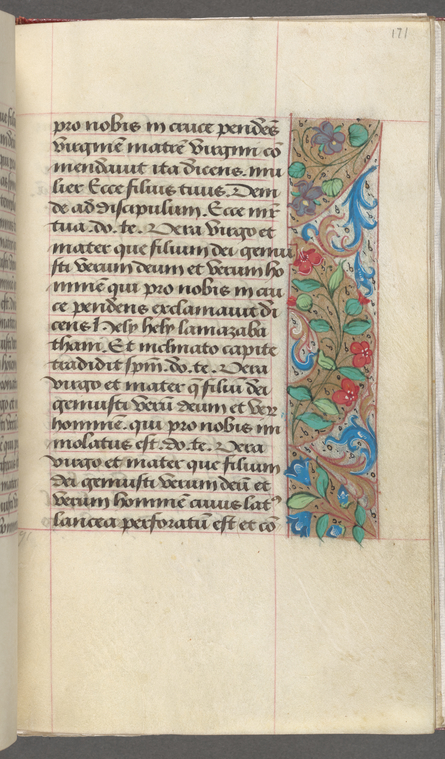 171
pro nobis in cruce pendēs
virginē matrē virgini cō
mendavit ita dicens. mu
lier Ecce filius tuus. Dein
de ad discipulum. Ecce mr̄
tua .do. te. Vera virgo et
mater que filium dei genui
sti verum deum et verum ho
minē qui pro nobis in cru
ce pendens exclamavit di
cens Hely hely lamazaba
thani. Et inclinato capite
tradidit spm̄ .do. te. Vera
virgo et mater q̄ filiū dei
genuisti verū deum et ver
hominē. qui pro nobis im
molatus est .do. te. Vera
virgo et mater que filium
dei genuisti verum deū et
verum hominē cuius latꝰ
lancea perforatū est et cō